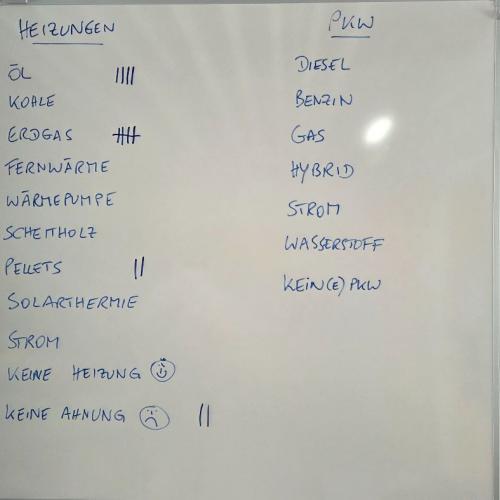 HEIZUNGEN
ÖL
KOHLE
ERDGAS
FERNWÄRME
WÄRMEPUMPE
SCHEITHOLZ
PELLETS
SOLARTHERMIE
STROM
KEINE HEIZUNG
KEINE AHNUNG
PKW
DIESEL
BENZIN
GAS
HYBRID
STROM
WASSERSTOFF
KEIN(E) PKW